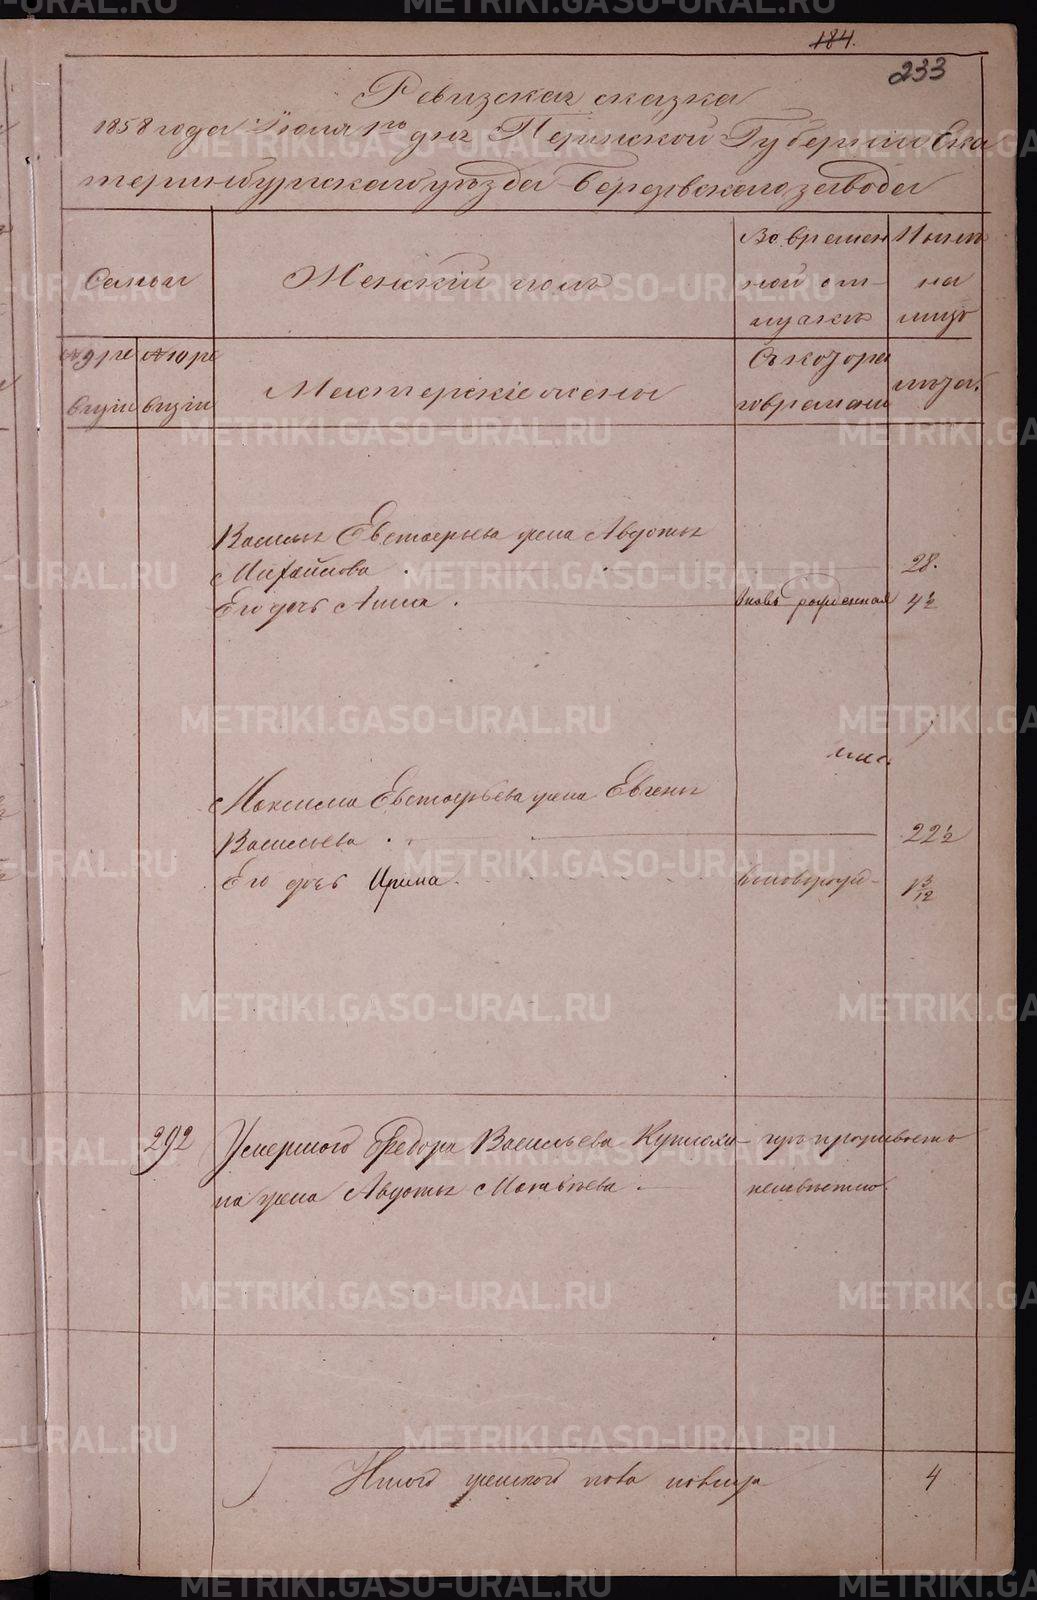 184.
233
Ревизская сказка
1858 года Июля 1го дня Пермской Губернии Ека
теринбургскаго уезда Березовскаго завода
Семьи
Женский пол
Во времен
ной от-
лучке
Ныне
на
лицо
Мастерские жены
Съ котора
го времени
лета.
Василья Евстафьева жена Авдотья
Михайлова . 28.
Его дочь Анна . вновь рожденная 4½
Максима Евстафьева жена Евгенья
Васильева . 22½
Его дочь Ирина . 1 3/12
292 Умершего Федора Васильева
на жена Авдотья Матвеева . неизвестно.
Итого женского пола налицо 4
METRIKI.GASO-URAL.RU